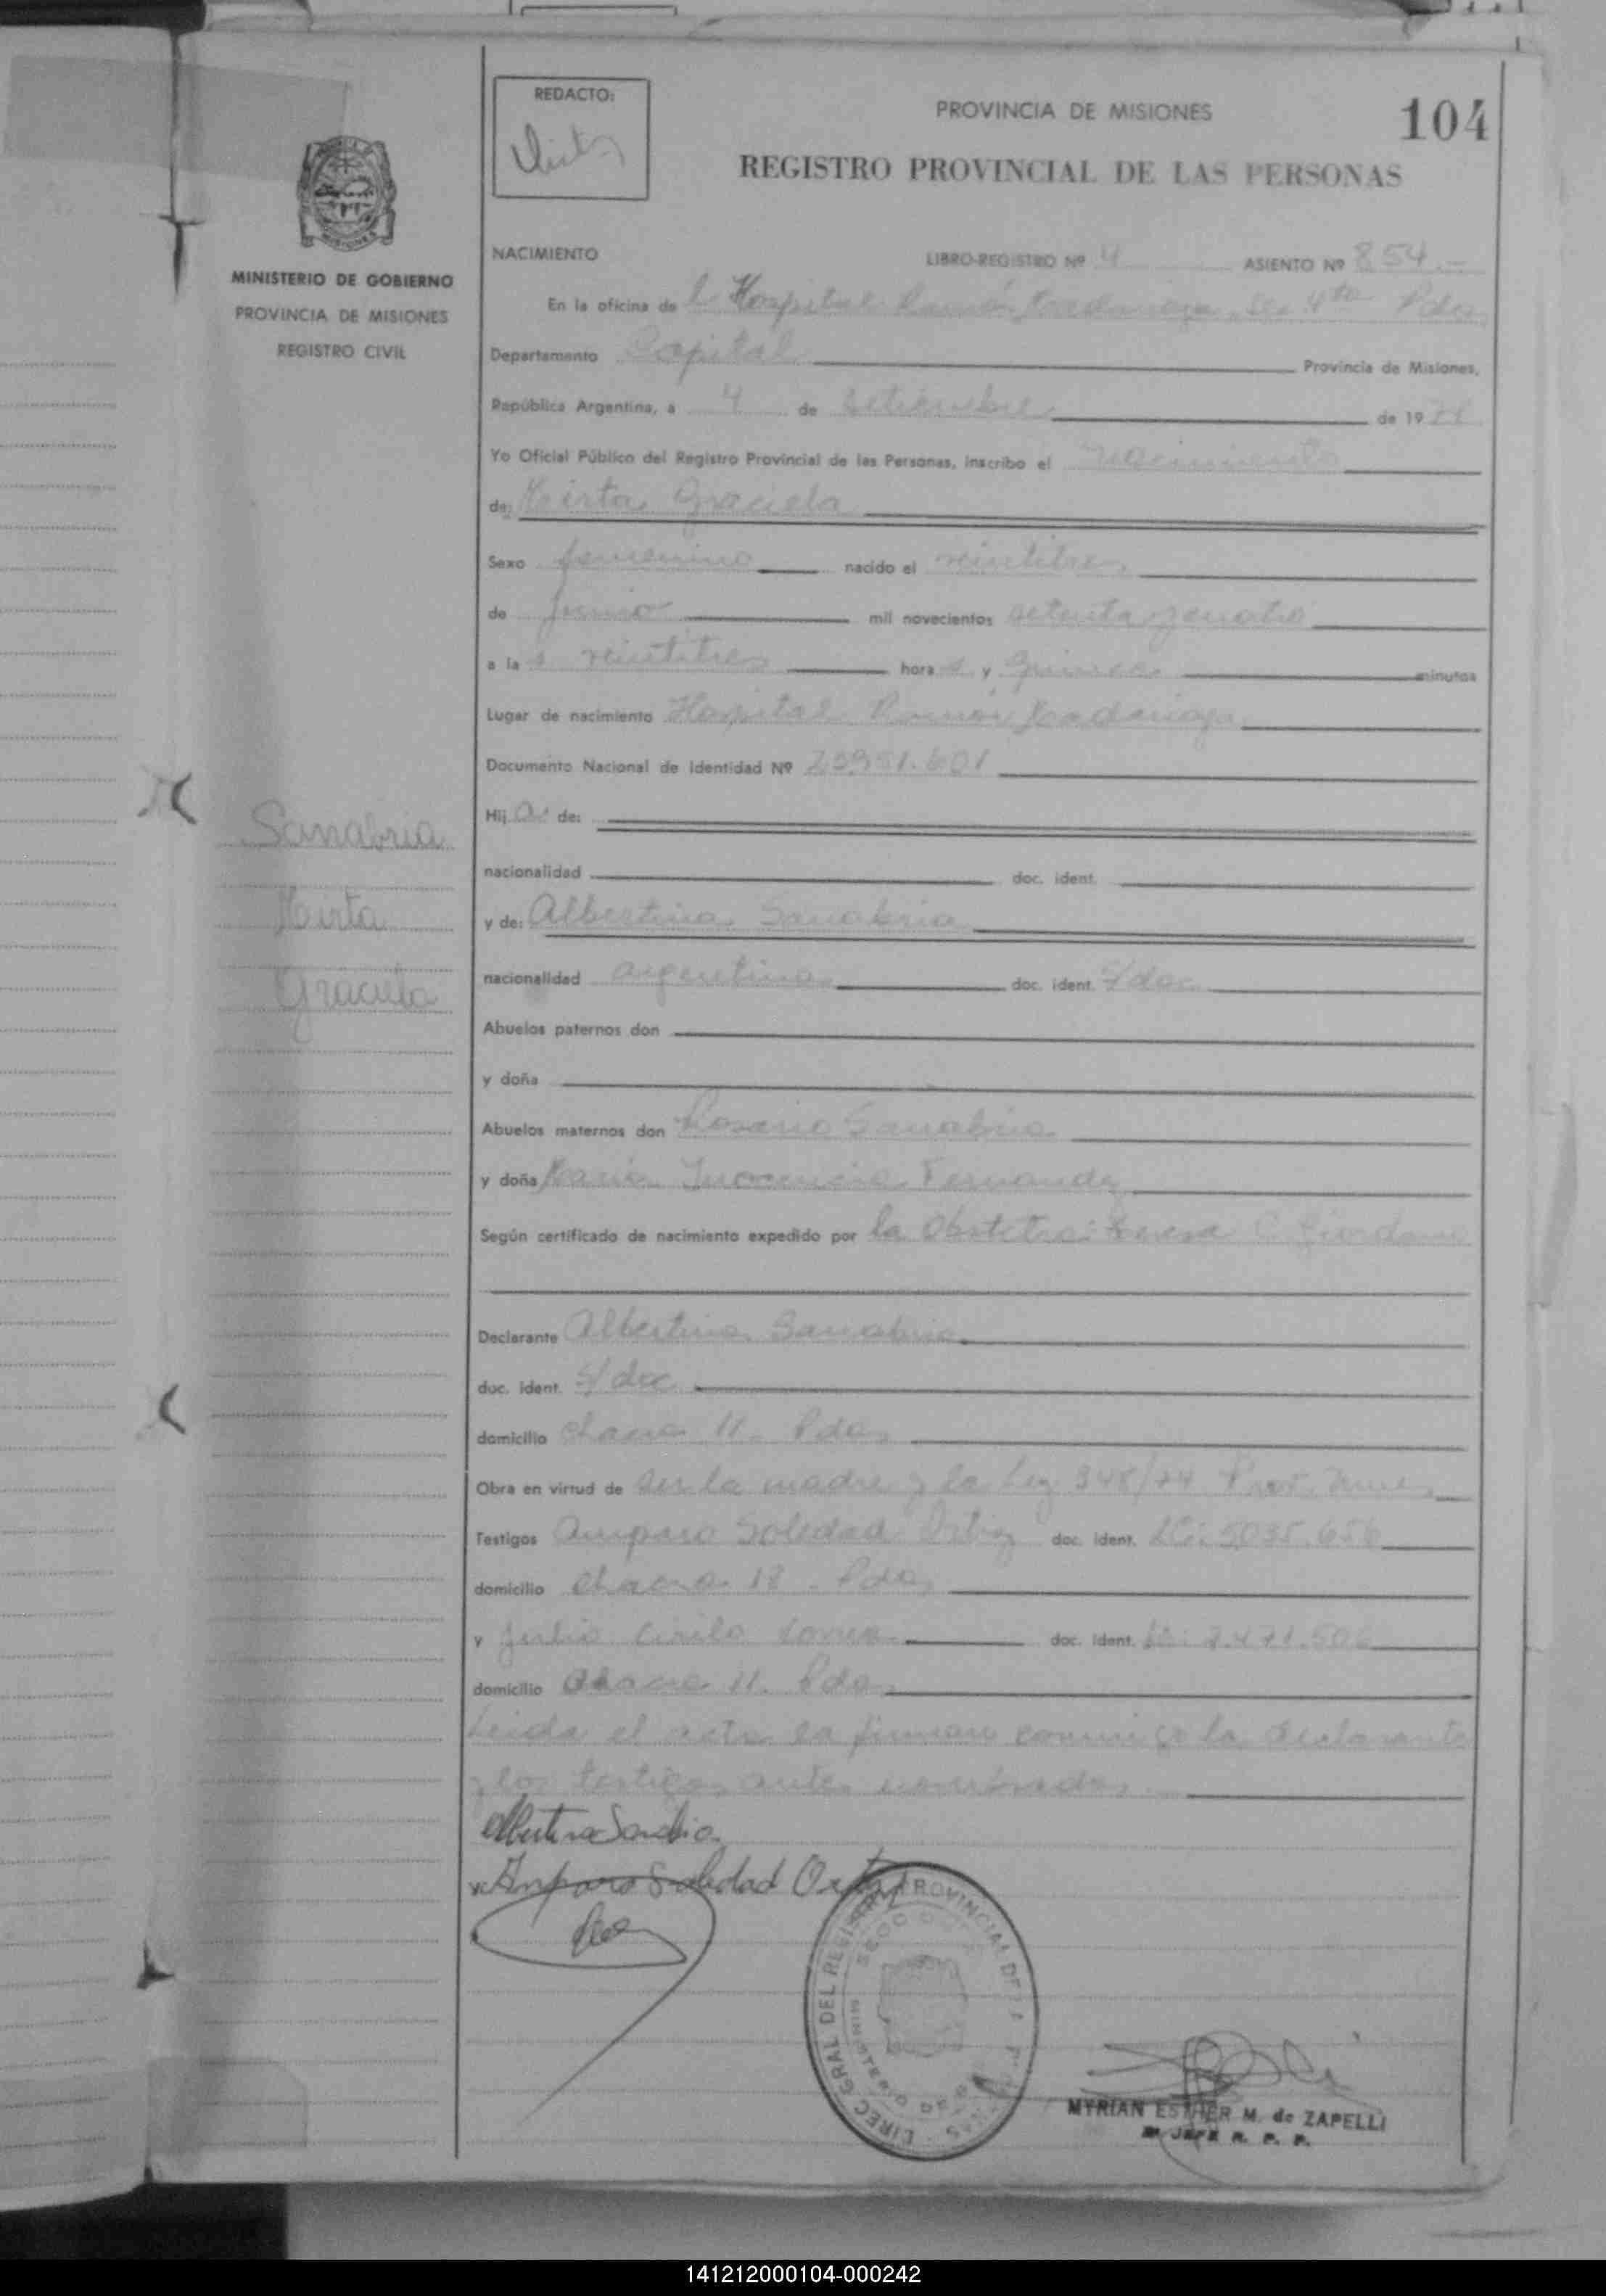 REDACTO:
PROVINCIA DE MISIONES
104
REGISTRO PROVINCIAL DE LAS PERSONAS
MINISTERIO DE GOBIERNO
PROVINCIA DE MISIONES
REGISTRO CIVIL
NACIMIENTO LIBRO-REGISTRO Nº 4 ASIENTO Nº 854.-
En la oficina de l Hospital Ramón Madariaga, Sec 4ta Pdas
Departamento Capital Provincia de Misiones,
República Argentina, a 4 de setiembre de 19
Yo Oficial Público del Registro Provincial de las Personas, inscribo el nacimiento
de: Mirta Graciela
Sexo femenino nacido el veintitres
de junio mil novecientos setenta y cuatro
a la s veintitres hora s y quince minutos
Lugar de nacimiento Hospital Ramón Madariaga
Documento Nacional de Identidad Nº 23951.601
Hij a de:
Sanabria
Mirta
Graciela
nacionalidad doc. ident.
y de: Albertina Sanabria
nacionalidad argentina doc. ident. s/doc
Abuelos paternos don
y doña
Abuelos maternos don Rosario Sanabria
y doña María Inocencia Fernandez
Según certificado de nacimiento expedido por la Obstetra: Teresa C. Giordano
Declarante Albertina Sanabria
doc. ident. s/doc
domicilio Chacra 11. Pdas
Obra en virtud de ser la madre y la Ley 348/74
Testigos Amparo Soledad Ortiz doc. ident. LC: 5035.656
domicilio Chacra 18. Pdas
y Julio Cirilo doc. ident. 7.471.506
domicilio Chacra 11. Pdas
Leida el acta la firman conmigo la declarante
y los testigos antes nombrados
Albertina Sanabria
Amparo Soledad Ortiz
DIREC. GRAL DEL REGISTRO PROVINCIAL DE LAS PERSONAS
MINISTERIO DE
MYRIAN ESTHER M. de ZAPELLI
JEFE R. P. P.
141212000104-000242